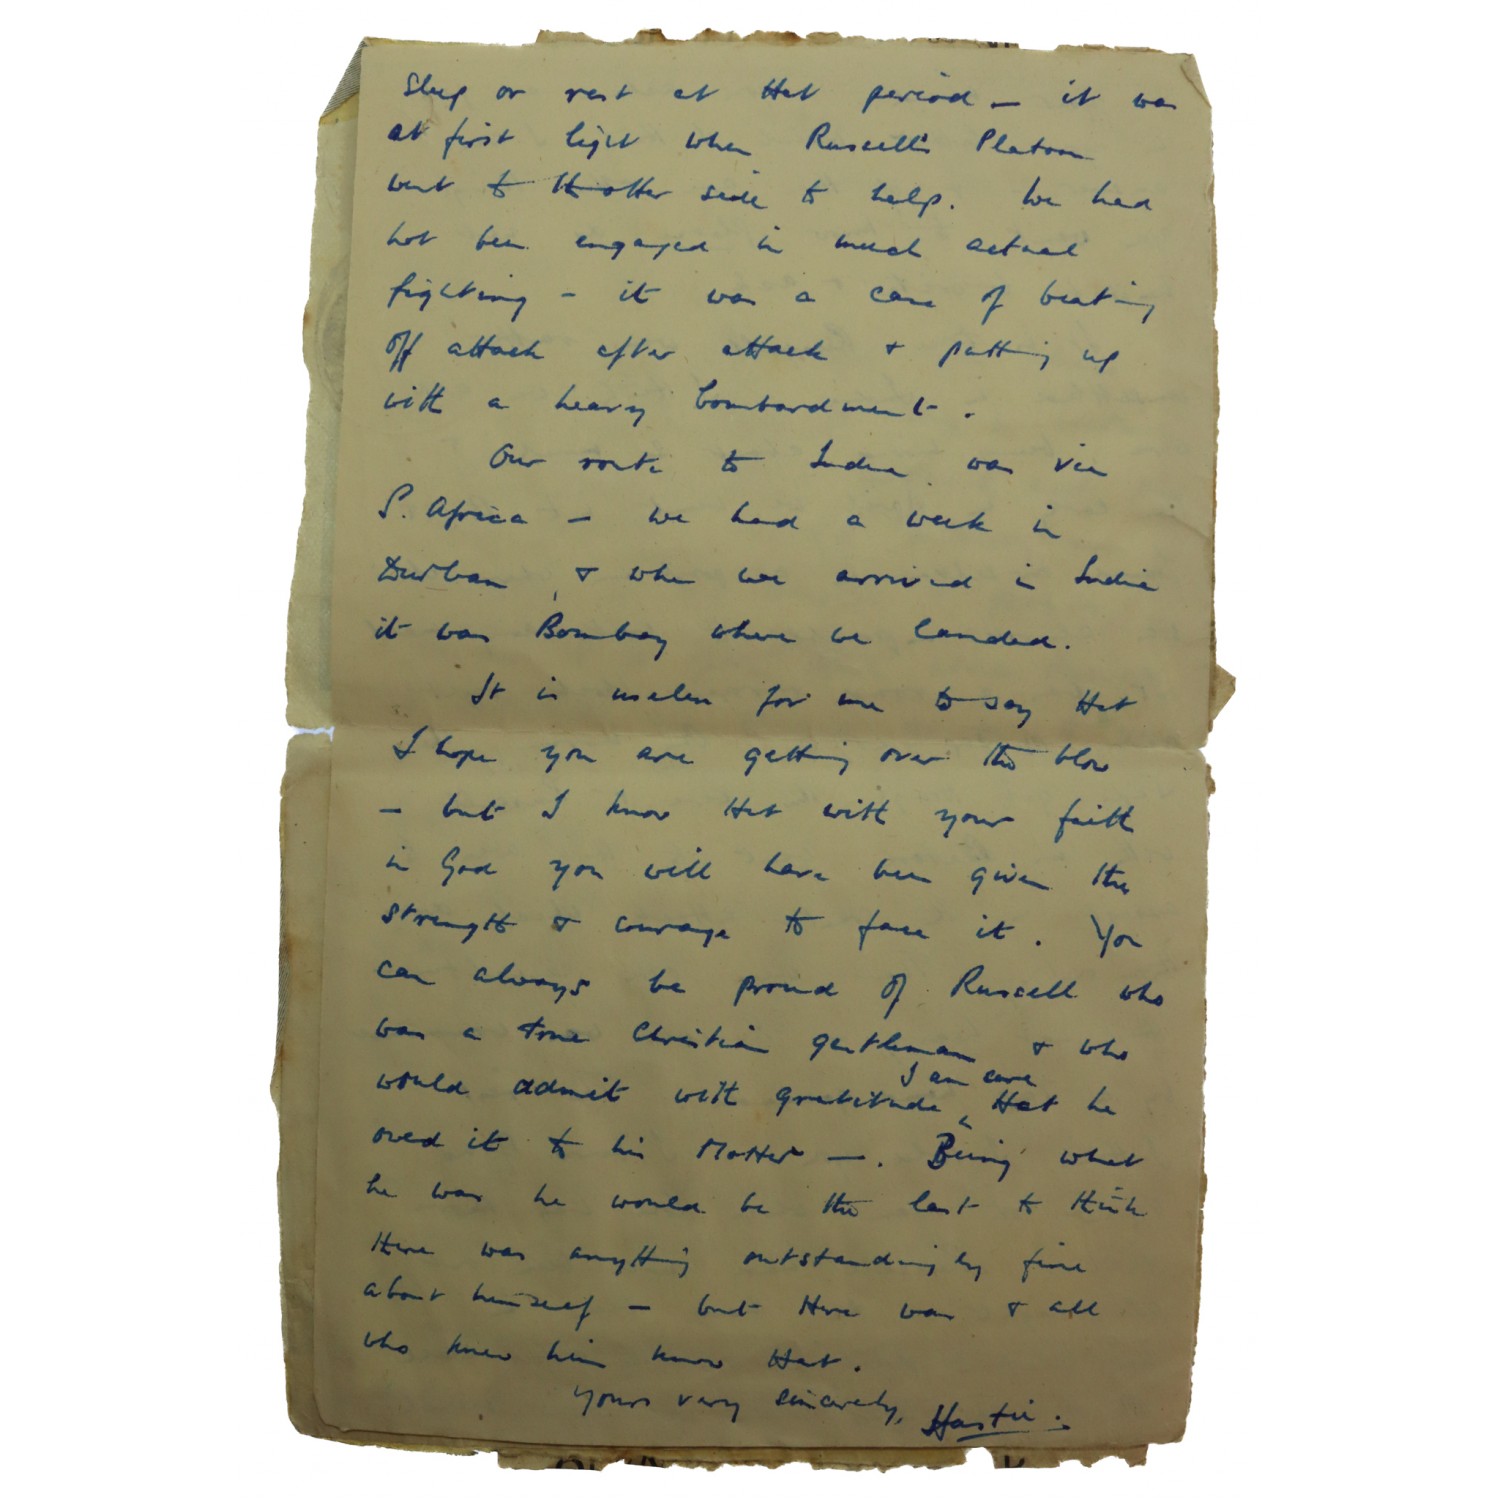 sleep or rest at that period — it was
at first light when Russell's Platoon
went to the other side to help. We had
not been engaged in much actual
fighting - it was a case of beating
off attack after attack & putting up
with a heavy bombardment.
Our route to India was via
S. Africa — we had a week in
Durban, & when we arrived in India
it was Bombay where we landed.
It is useless for me to say that
I hope you are getting over the blow
— but I know that with your faith
in God you will have been given the
strength & courage to face it. You
can always be proud of Russell who
was a true Christian gentleman & who
I am sure
would admit with gratitude ^ that he
owed it to his Mother —. Being what
he was he would be the last to think
there was anything outstandingly fine
about himself — but there was & all
who knew him know that.
Yours very sincerely, Hastie.